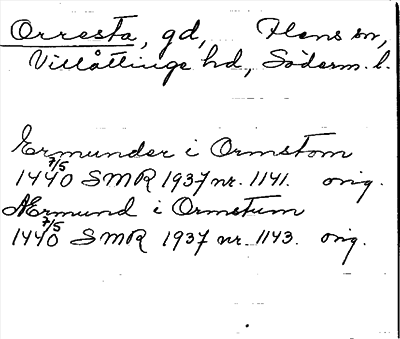 Orresta, gd, Flens sn,
Villåttinge hd, Söderm. l.
Ermunder i Ormstom
7/5 1440 SMR 1937 nr. 1141. orig.
Ærmund i Ormstum
7/5 1440 SMR 1937 nr. 1143. orig.